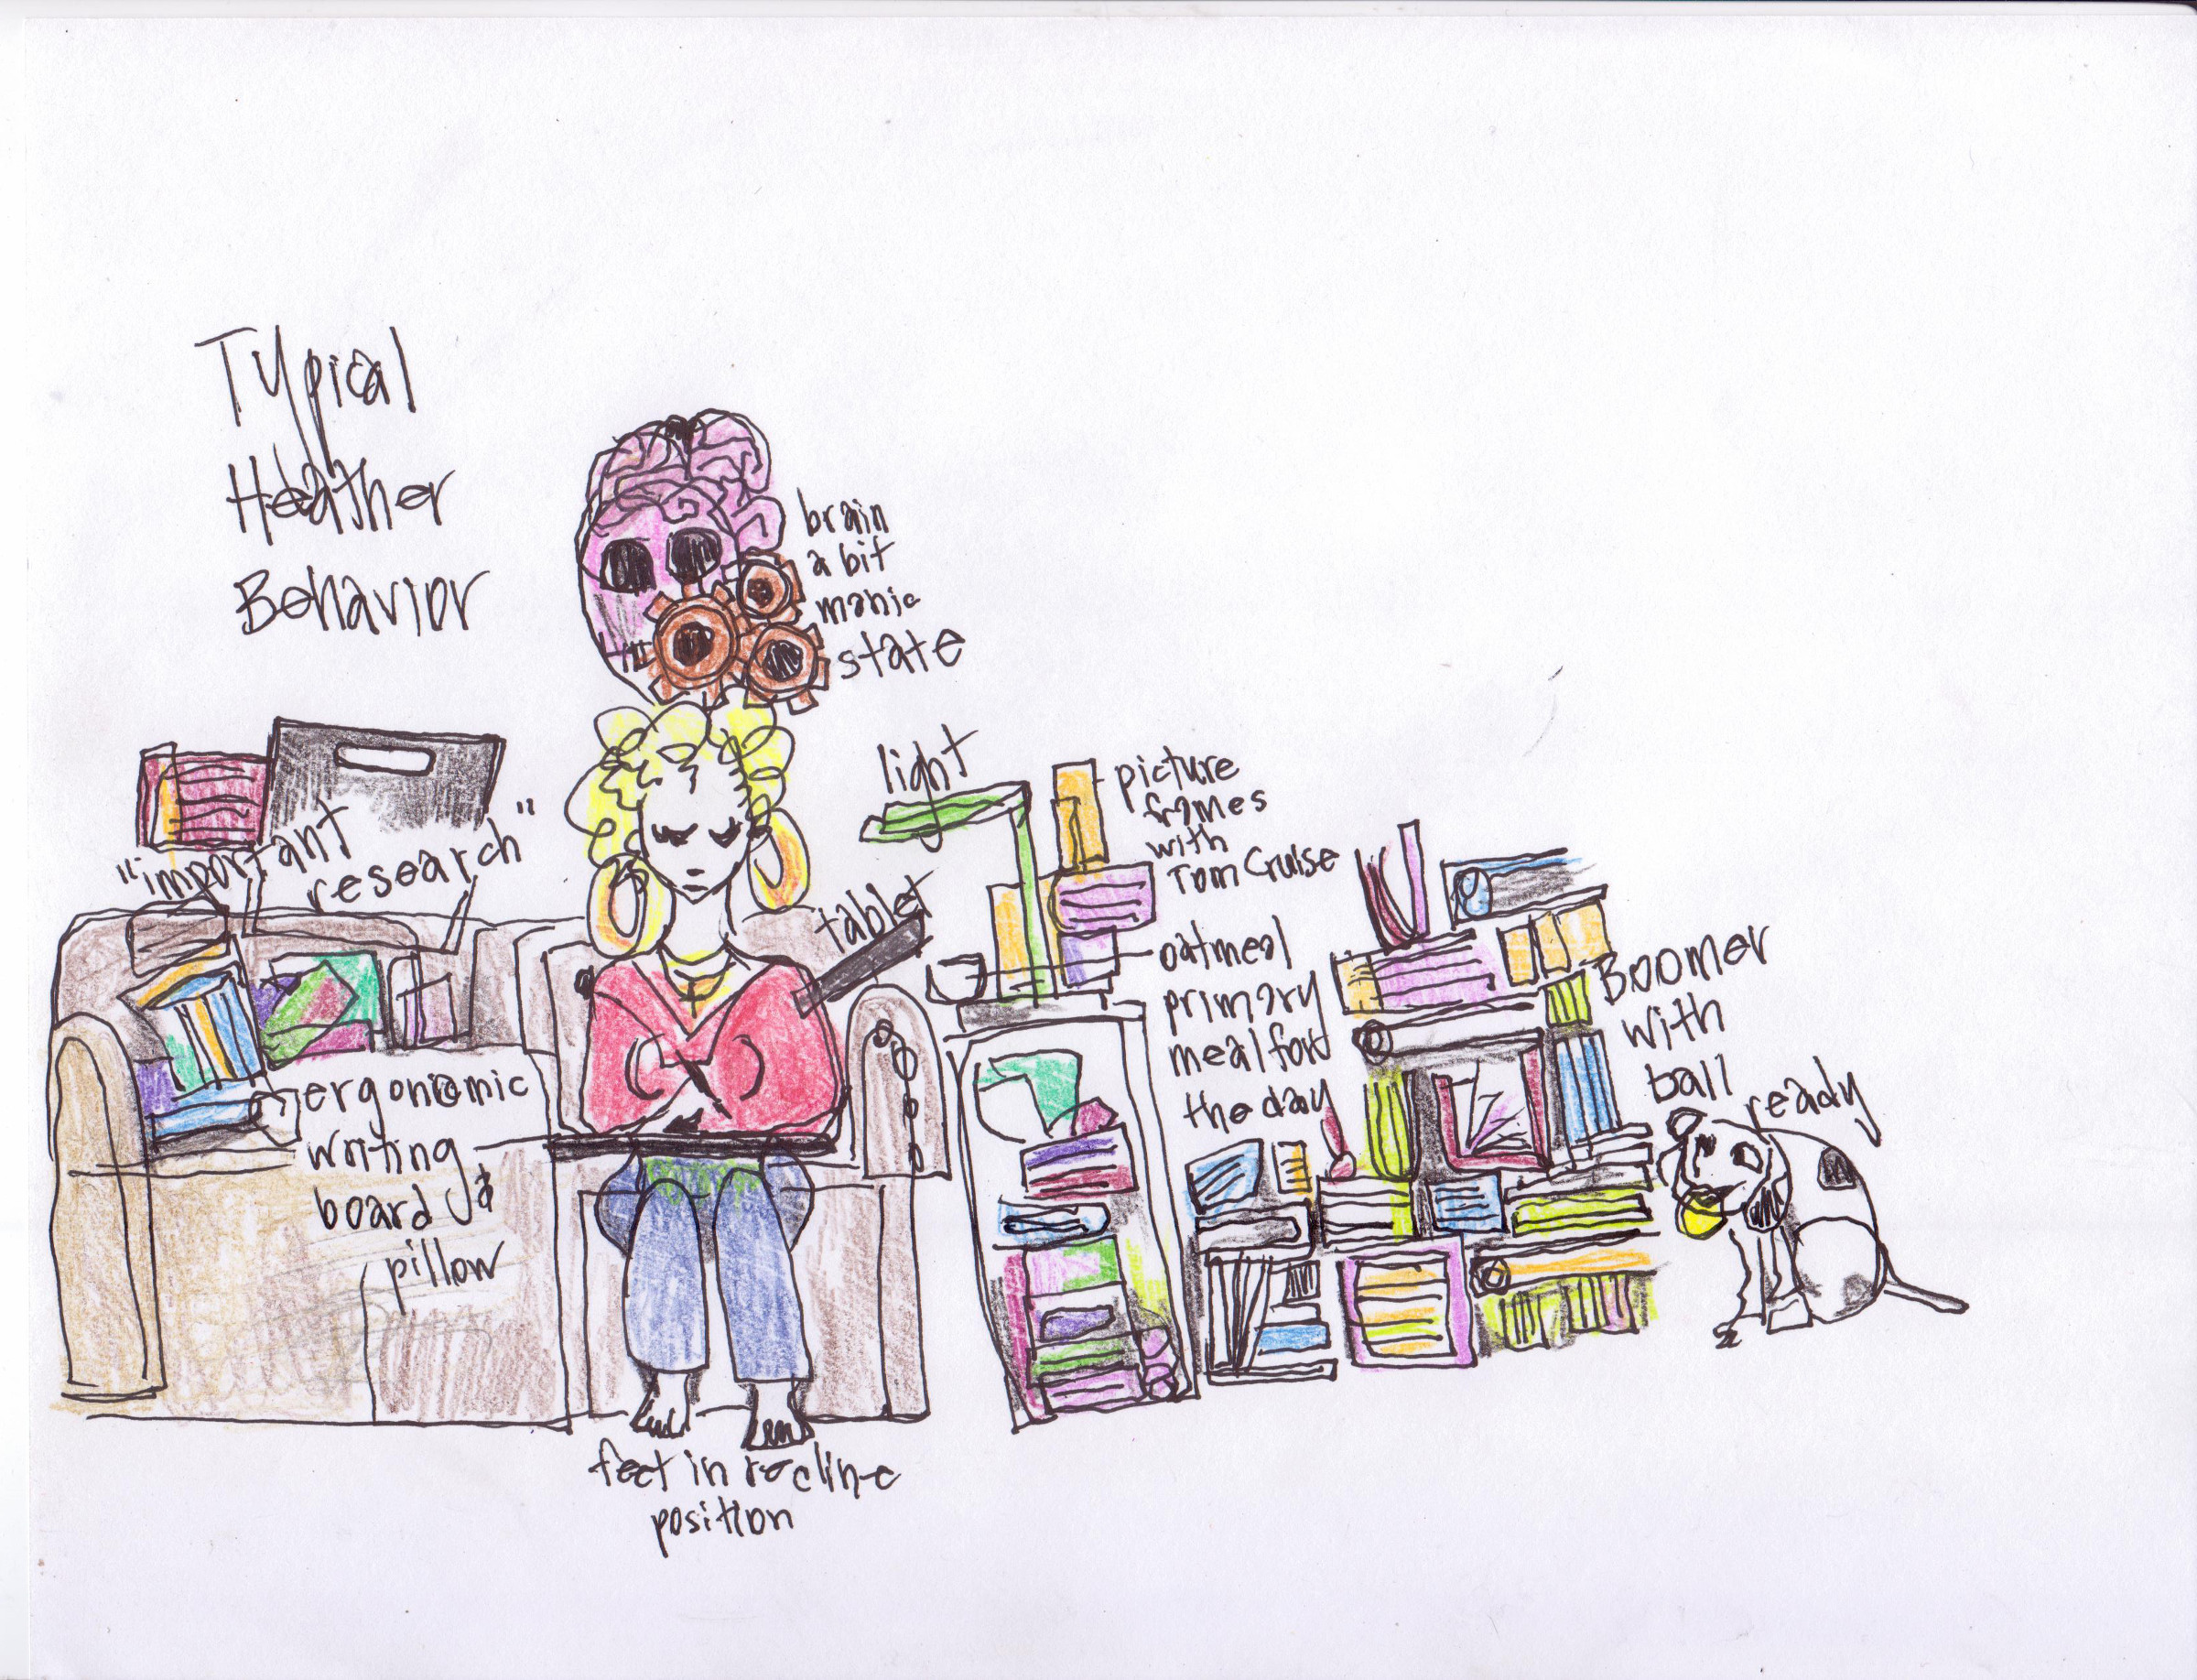 Typical
Heather
Behavior
brain
a bit
manic
state
"important
research"
light
picture
frames
with
Tom Cruise
tablet
oatmeal
primary
meal for
the day
Boomer
with
ball
ready
ergonomic
writing
board &
pillow
feet in recline
position